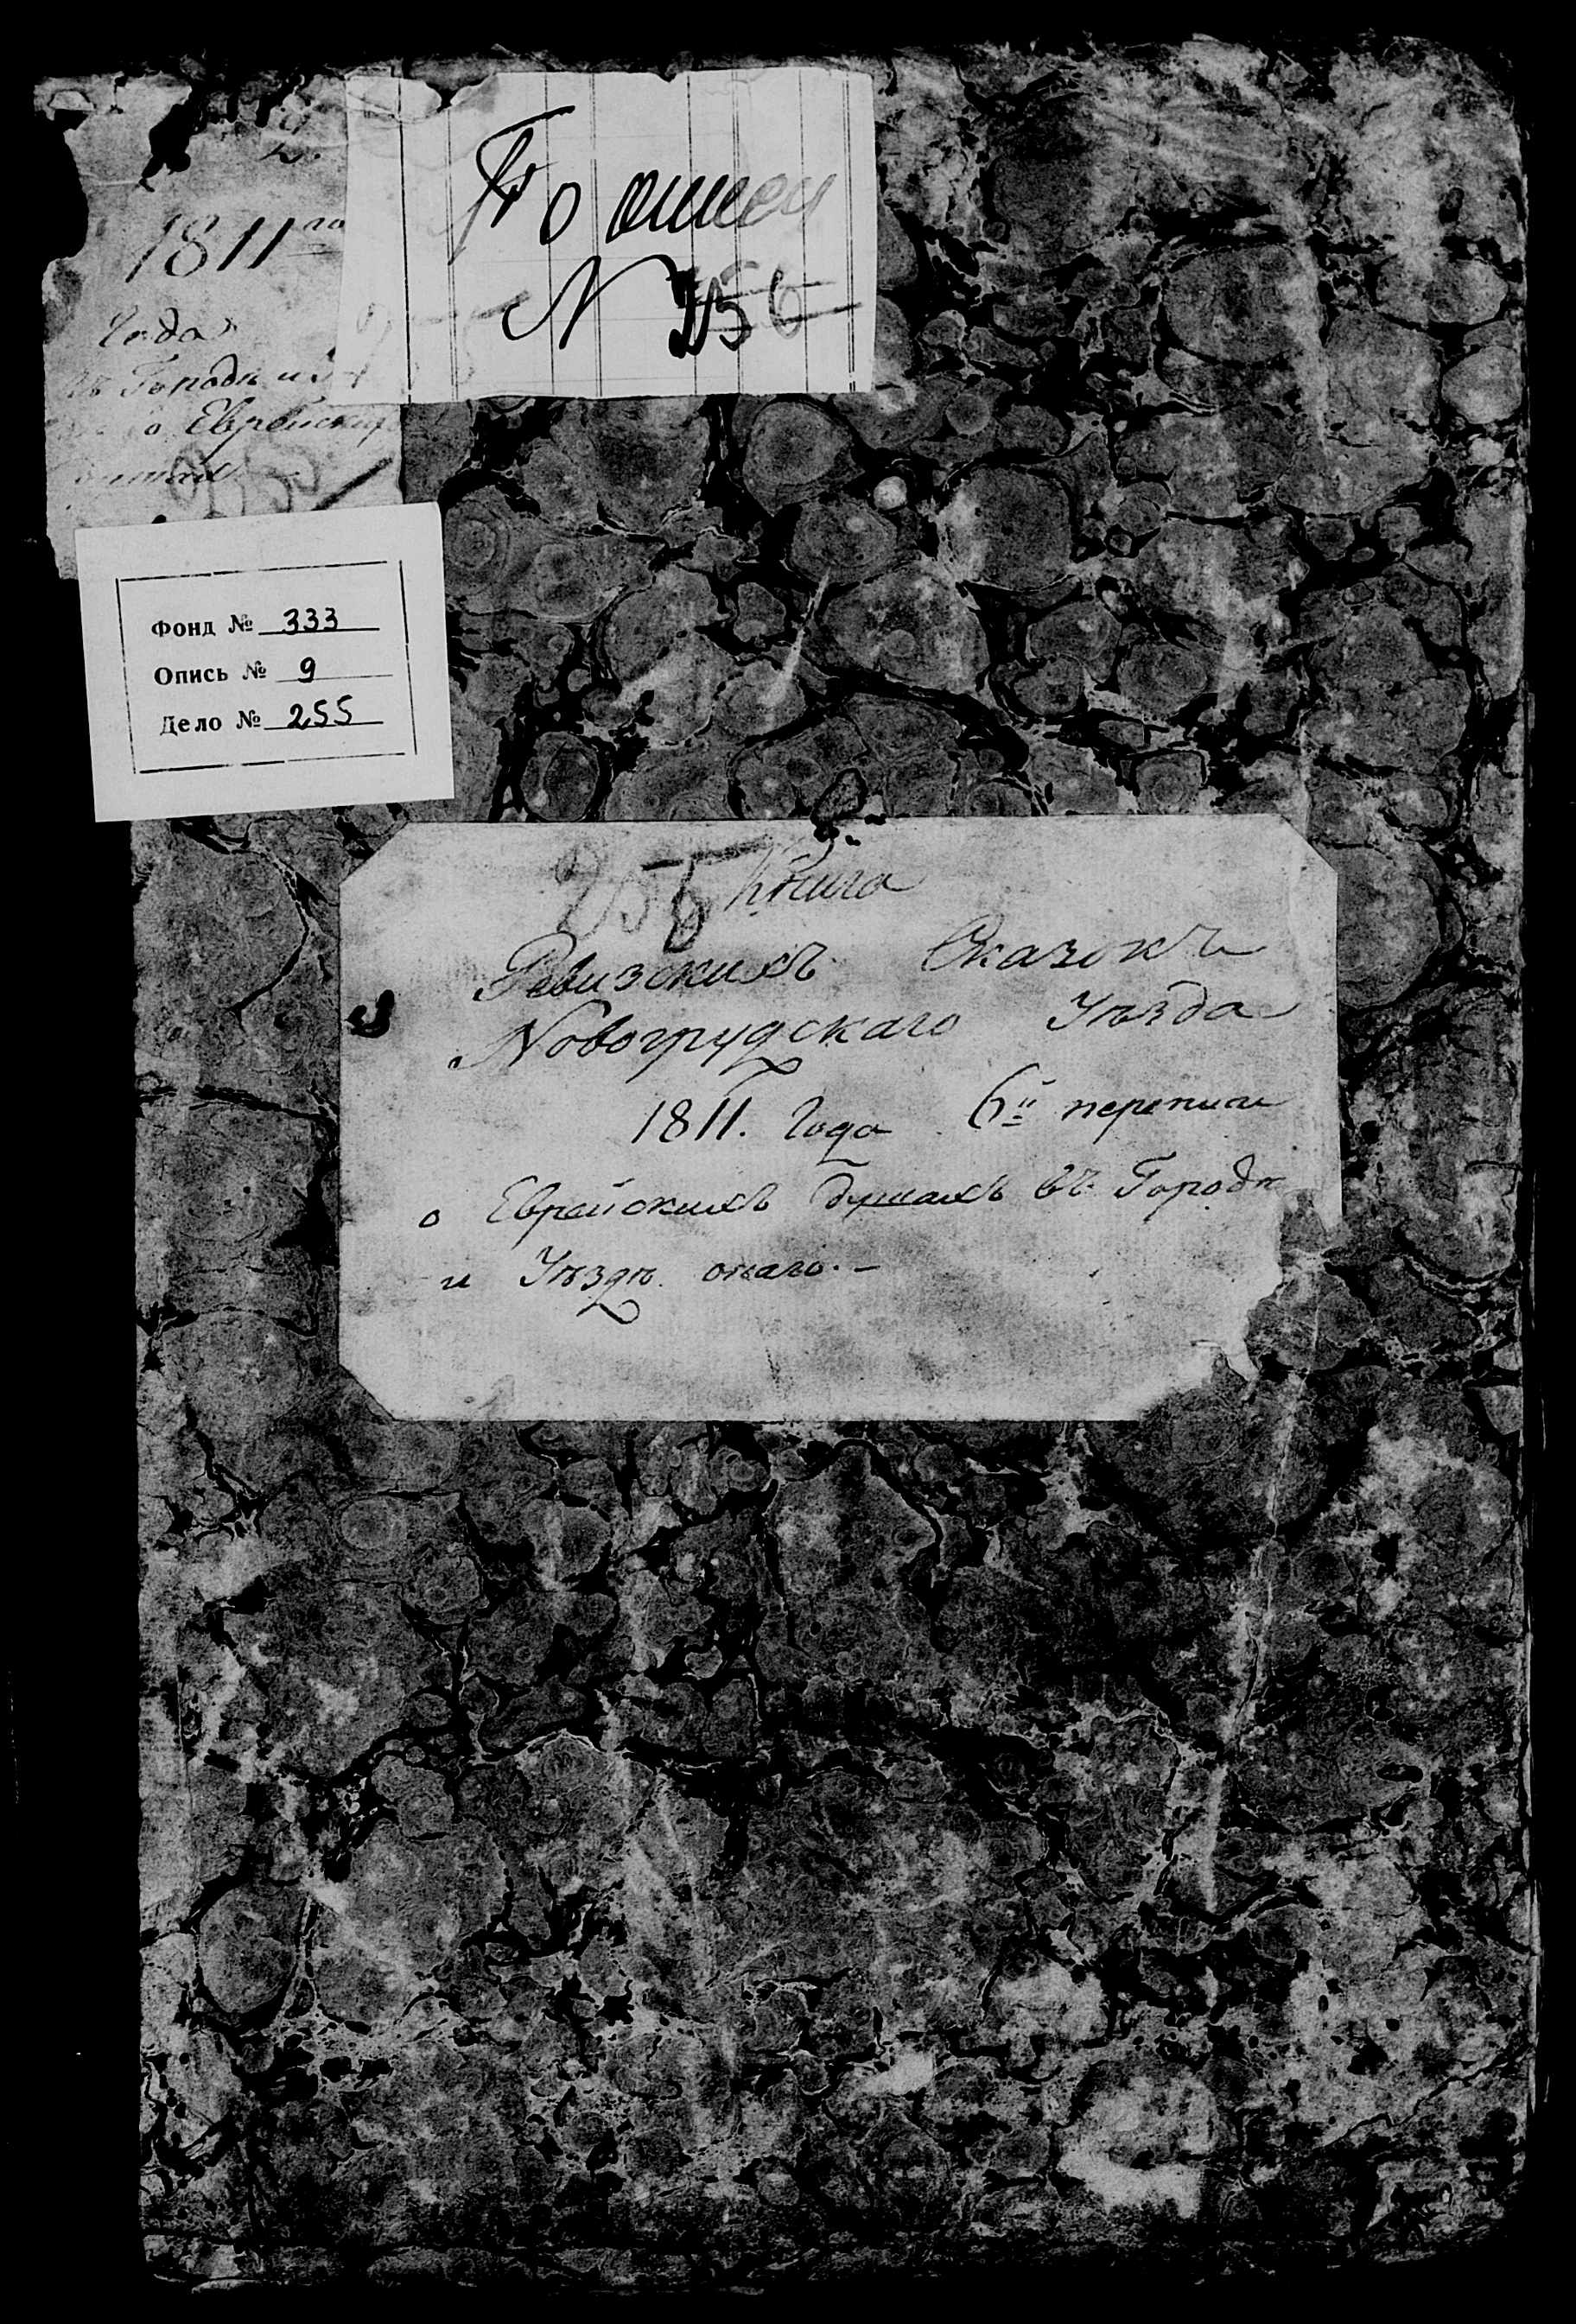 1811го
Года
Городѣ и
о Еврейских
По описи
N 256
Фонд № 333
Опись № 9
Дело № 255
255 Книга
Ревизскихъ Сказокъ
Новогрудскаго Уѣзда
1811. Года 6й переписи
о Еврейскихъ душахъ въ Городѣ
и Уѣздѣ онаго. –